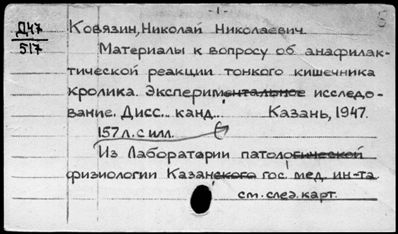 - 1 -
Д47
517
Ковязин, Николай Николаевич.
Материалы к вопросу об анафилак-
тической реакции тонкого кишечника
кролика. Экспериментальное исследо-
вание. Дисс... канд... Казань, 1947.
157 л. с илл.
Из Лаборатарии патологической
физиологии Казанского гос. мед. ин-та
см. след. карт.